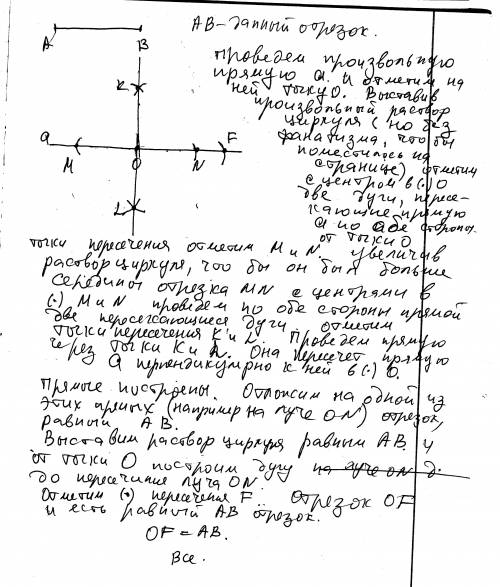 АВ - данный отрезок.
А В
Проведем произвольную
прямую а. и отметим на
ней тычку О. Выставив
произвольный раствор
циркуля (но без
фанатизма, что бы
поместилось на
странице) отметим
с центром в (·) О
две дуги, пересе-
кающие прямую
а по обе стороны
от тычки О
К
а М О N F
L
тычки пересечения отметим М и N. увеличив
раствор циркуля, что бы он был больше
середины отрезка MN с центрами в
(·) М и N проведем по обе стороны прямой
две пересекающиеся дуги отметим
тычки пересечения К и L. Проведем прямую
через тычки К и L. Она пересечет прямую
а перпендикулярно к ней в (·) О.
Прямые построены. Отложим на одной из
этих прямых (например на луче ON) отрезок,
равный АВ.
Выставим раствор циркуля равным АВ и
от тычки О построим дугу на луче ON д.
до пересечения луча ON.
Отметим (·) пересечения F. Отрезок OF
и есть равный АВ отрезок.
OF = АВ.
Все.